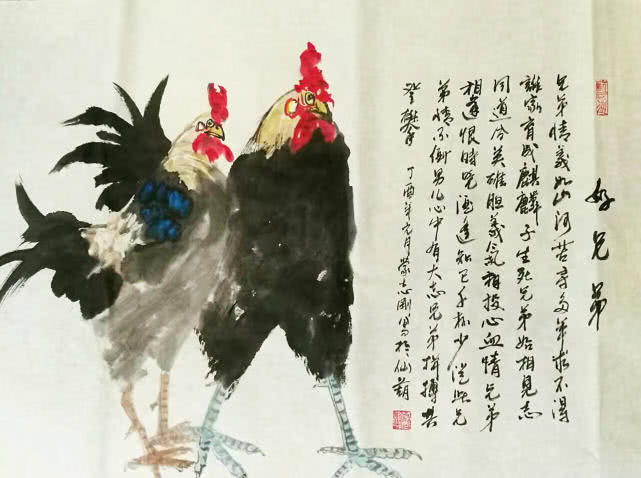 好兄弟
兄弟情義如山河苦辛多年求不得
離家育成麒麟子生死兄弟始相見志
同道合英雄胆義氣相投心血情兄弟
相逢恨時晚酒逢知己千杯少從此兄
弟情不倒男儿心中有大志兄弟拼搏共
登攀
丁酉年元月蒙志刚写於仙葫